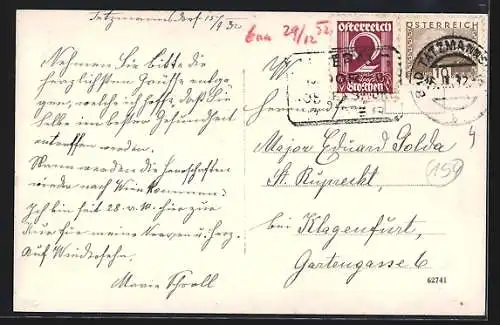 Tatzmannsdorf 15/9 32
Nehmen Sie bitte die
herzlichsten Grüße entge-
gen, welche ich hoffe, daß Sie
selbe im besten Gesundheit
antreffen werden.
Wann werden die Herrschaften
wieder nach Wien kommen?
Ich bin seit 28. v. M. hier zur
Kur für meine Nerven u. Herz.
Auf Wiedersehn.
Marie
29/12 32
Österreich
2
Groschen
ÖSTERREICH
TATZMANNS
Major Eduard Golda
St. Ruprecht,
bei Klagenfurt,
Gartengasse 6
159
62741